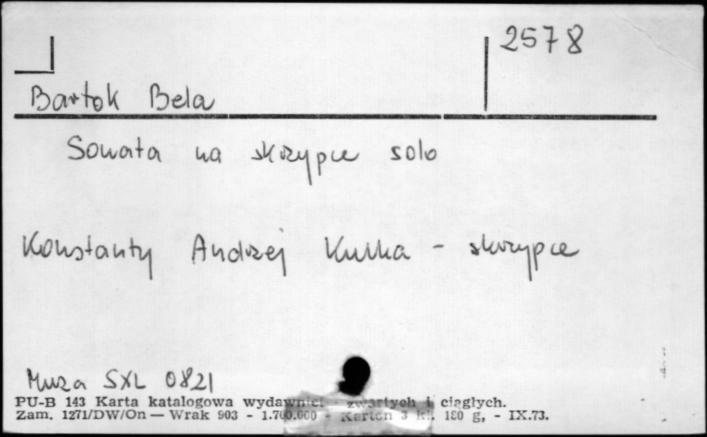 2578
Bartok Bela
Sonata na skrzypce solo
Konstanty Andrzej Kulka - skrzypce
Muza SXL 0821
PU-B 143 Karta katalogowa wydawnict zwartych i ciągłych.
Zam. 1271/DW/On — Wrak 903 - 1.700.000 - Karton 3 kl. 180 g, - IX.73.